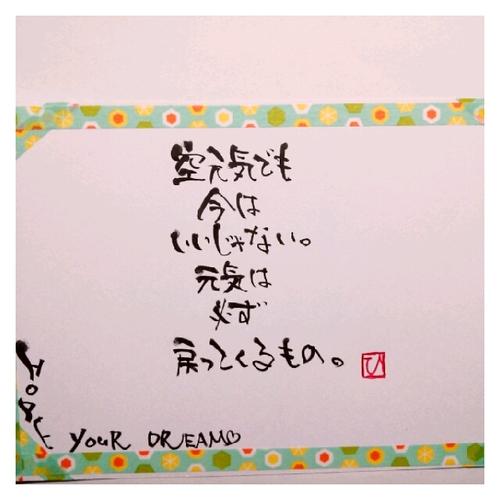 空元気でも
今は
いいじゃない。
元気は
必ず
戻ってくるもの。
ひ
YOUR DREAM